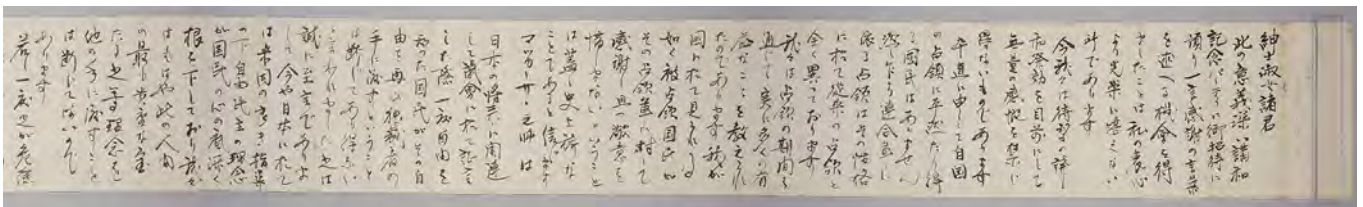 紳士淑女諸君
此の意義深い講和
記念バンクウに御招待に
預り一言感謝の言葉
を述べる機会を得
ましたことは私の衷心
より光栄に堪えない
所であります
今我々は待望の講
和発効を目前にして
無量の感慨を禁じ
得ないものであります
卒直に申して自国
の占領に平然たり得
る国民はありません
然し乍ら連合国に
依る占領はその性格
に於て従来の占領と
全く異っております
我々は占領の期間を
通じて実に多くの有
益なことを教えられ
たのであります 我が
国に於て見られる
如く被占領国民が
その占領並に対して
感謝し且つ敬意を
惜しまないということ
は蓋し史上稀な
ことであると信じます
マッカーサー元帥は
日本の将来に関連
して議会に於て証言
した際一旦自由を
知った国民がその自
由を再び独裁者の
手に渡すということ
は断じてあり得ない
と云われました 之は
誠に至言でありま
して今や日本に於て
は米国の良き指導
の下自由民主の理念
が国民の心の奥深く
根を下しており我々
はもはや此の人間
の最も貴重な
たる 理念を
他の手に渡すこと
は断じてないので
あります
若し一度之が危殆